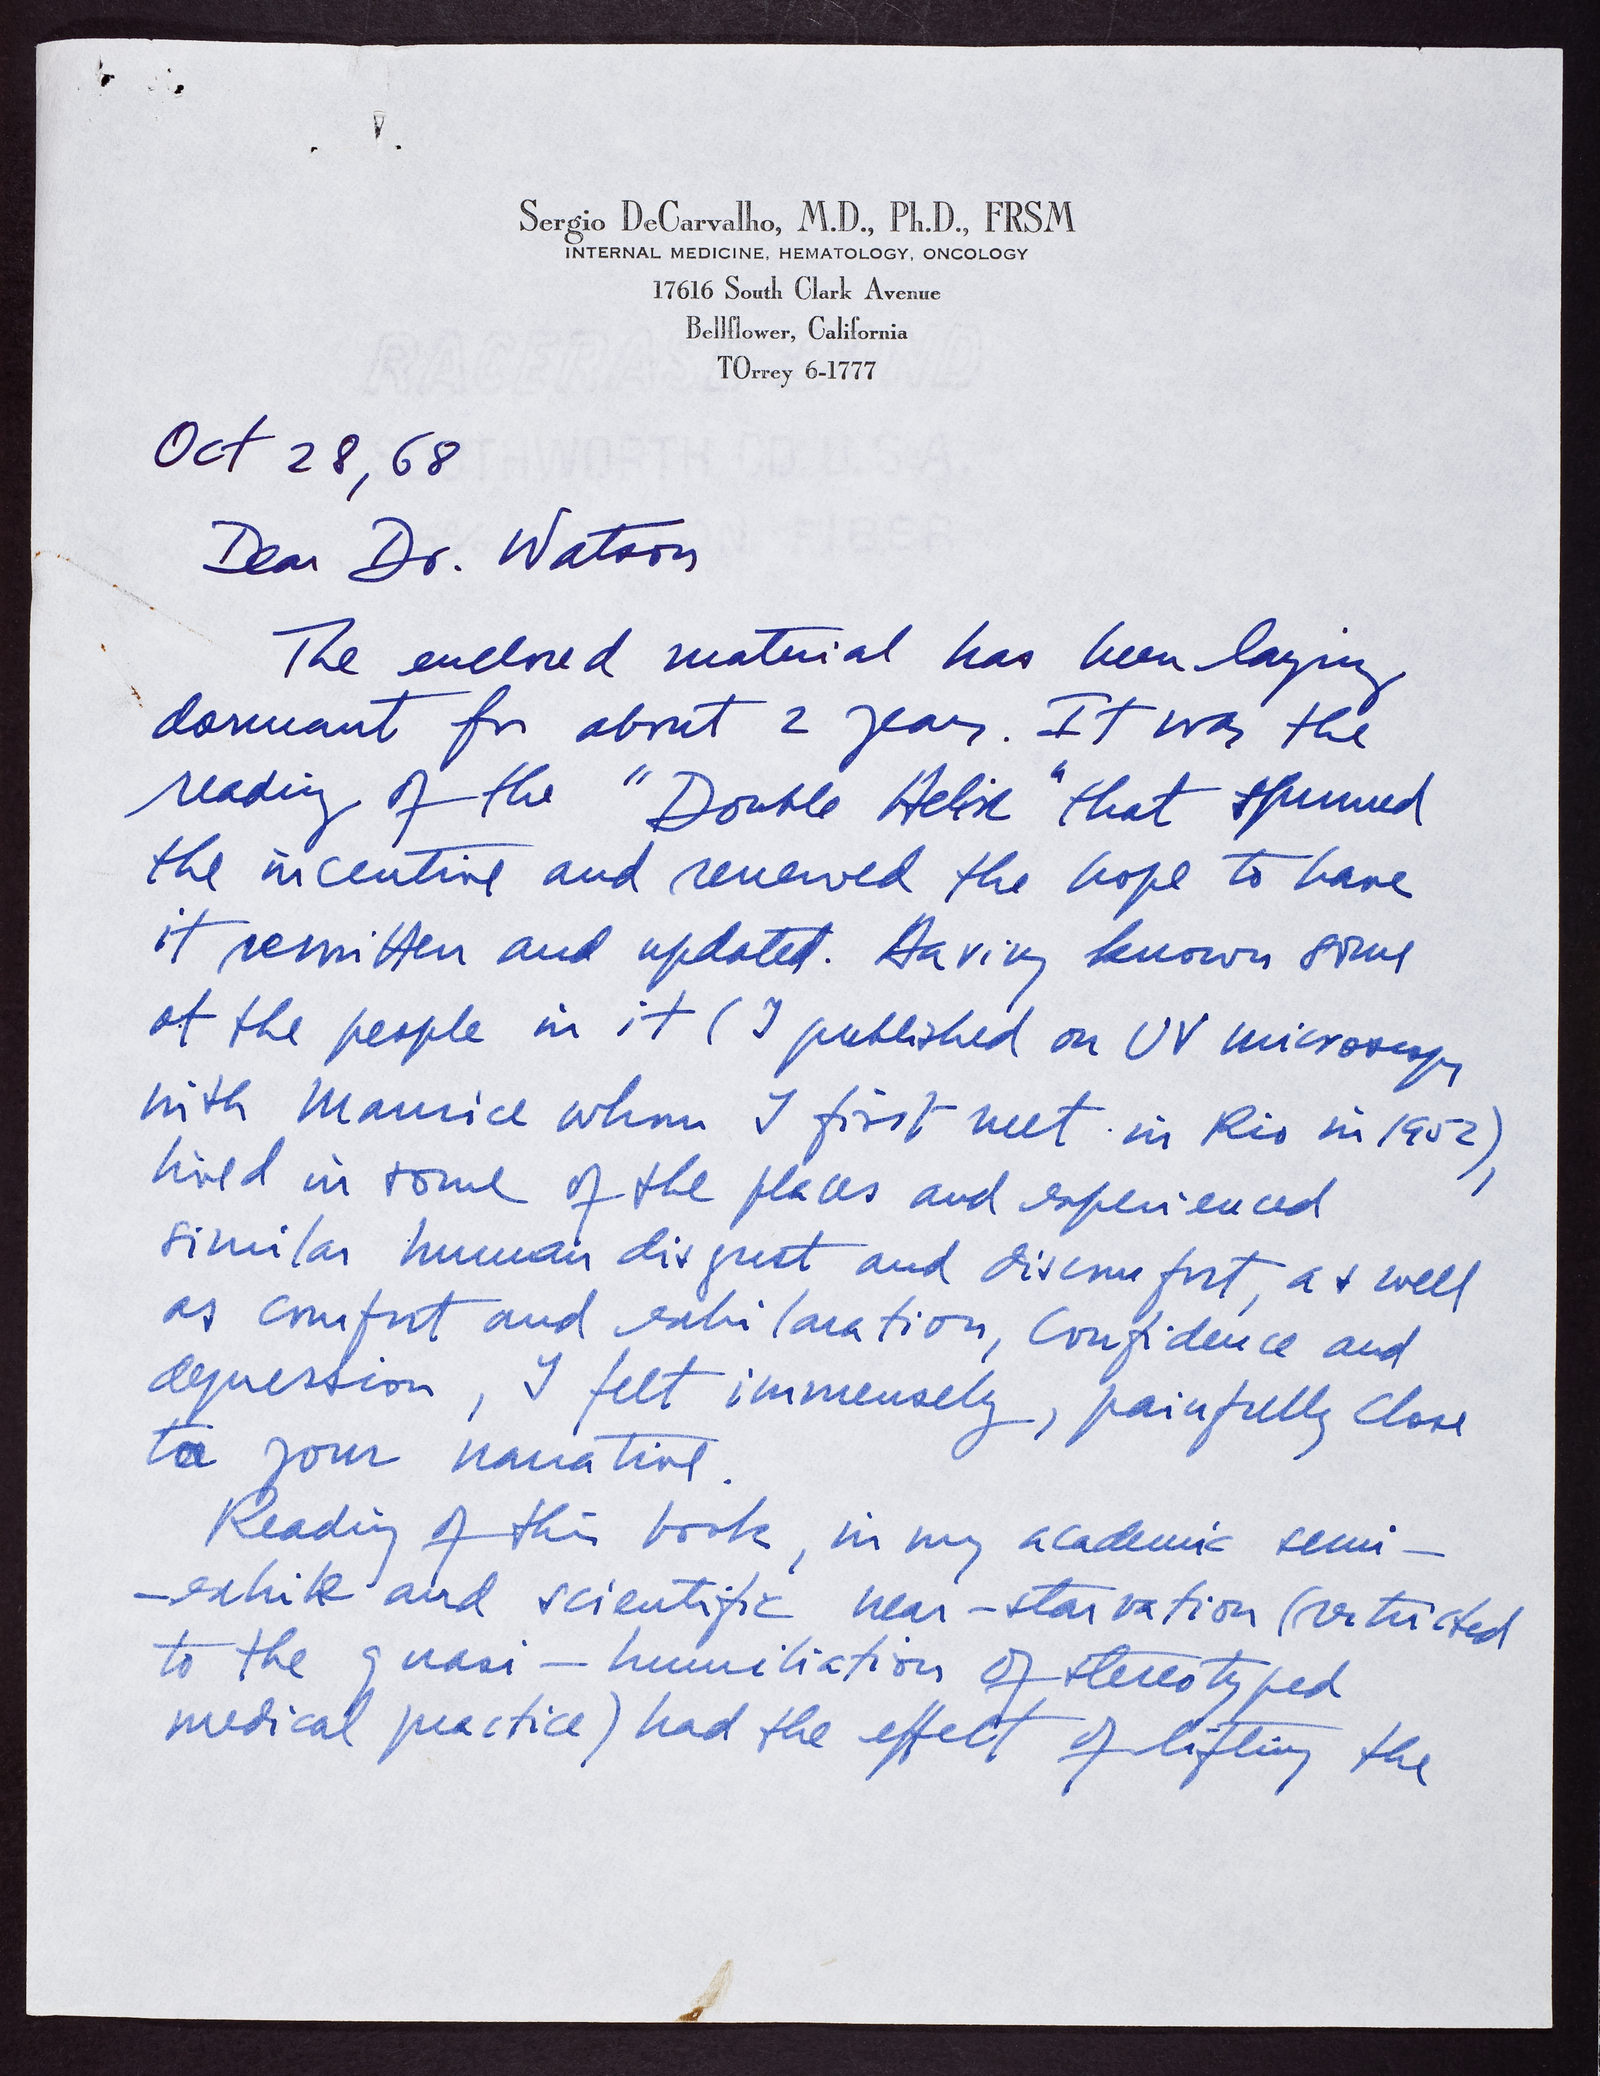 Sergio DeCarvalho, M.D., Ph.D., FRSM
INTERNAL MEDICINE, HEMATOLOGY, ONCOLOGY
17616 South Clark Avenue
Bellflower, California
TOrrey 6-1777
Oct 28, 68
Dear Dr. Watson
The enclosed material has been laying
dormant for about 2 years. It was the
reading of the "Double Helix" that spurred
the incentive and renewed the hope to have
it rewritten and updated. Having known some
of the people in it (I published on UV microscopy
with Maurice whom I first meet in Rio in 1952),
lived in some of the places and experienced
similar human disgust and discomfort, as well
as comfort and exhilaration, confidence and
depression, I felt immensely, painfully close
to your narrative.
Reading of this book, in my academic semi-
-exhile and scientific near-starvation (restricted
to the quasi-humiliation of stereotyped
medical practice) had the effect of lifting the